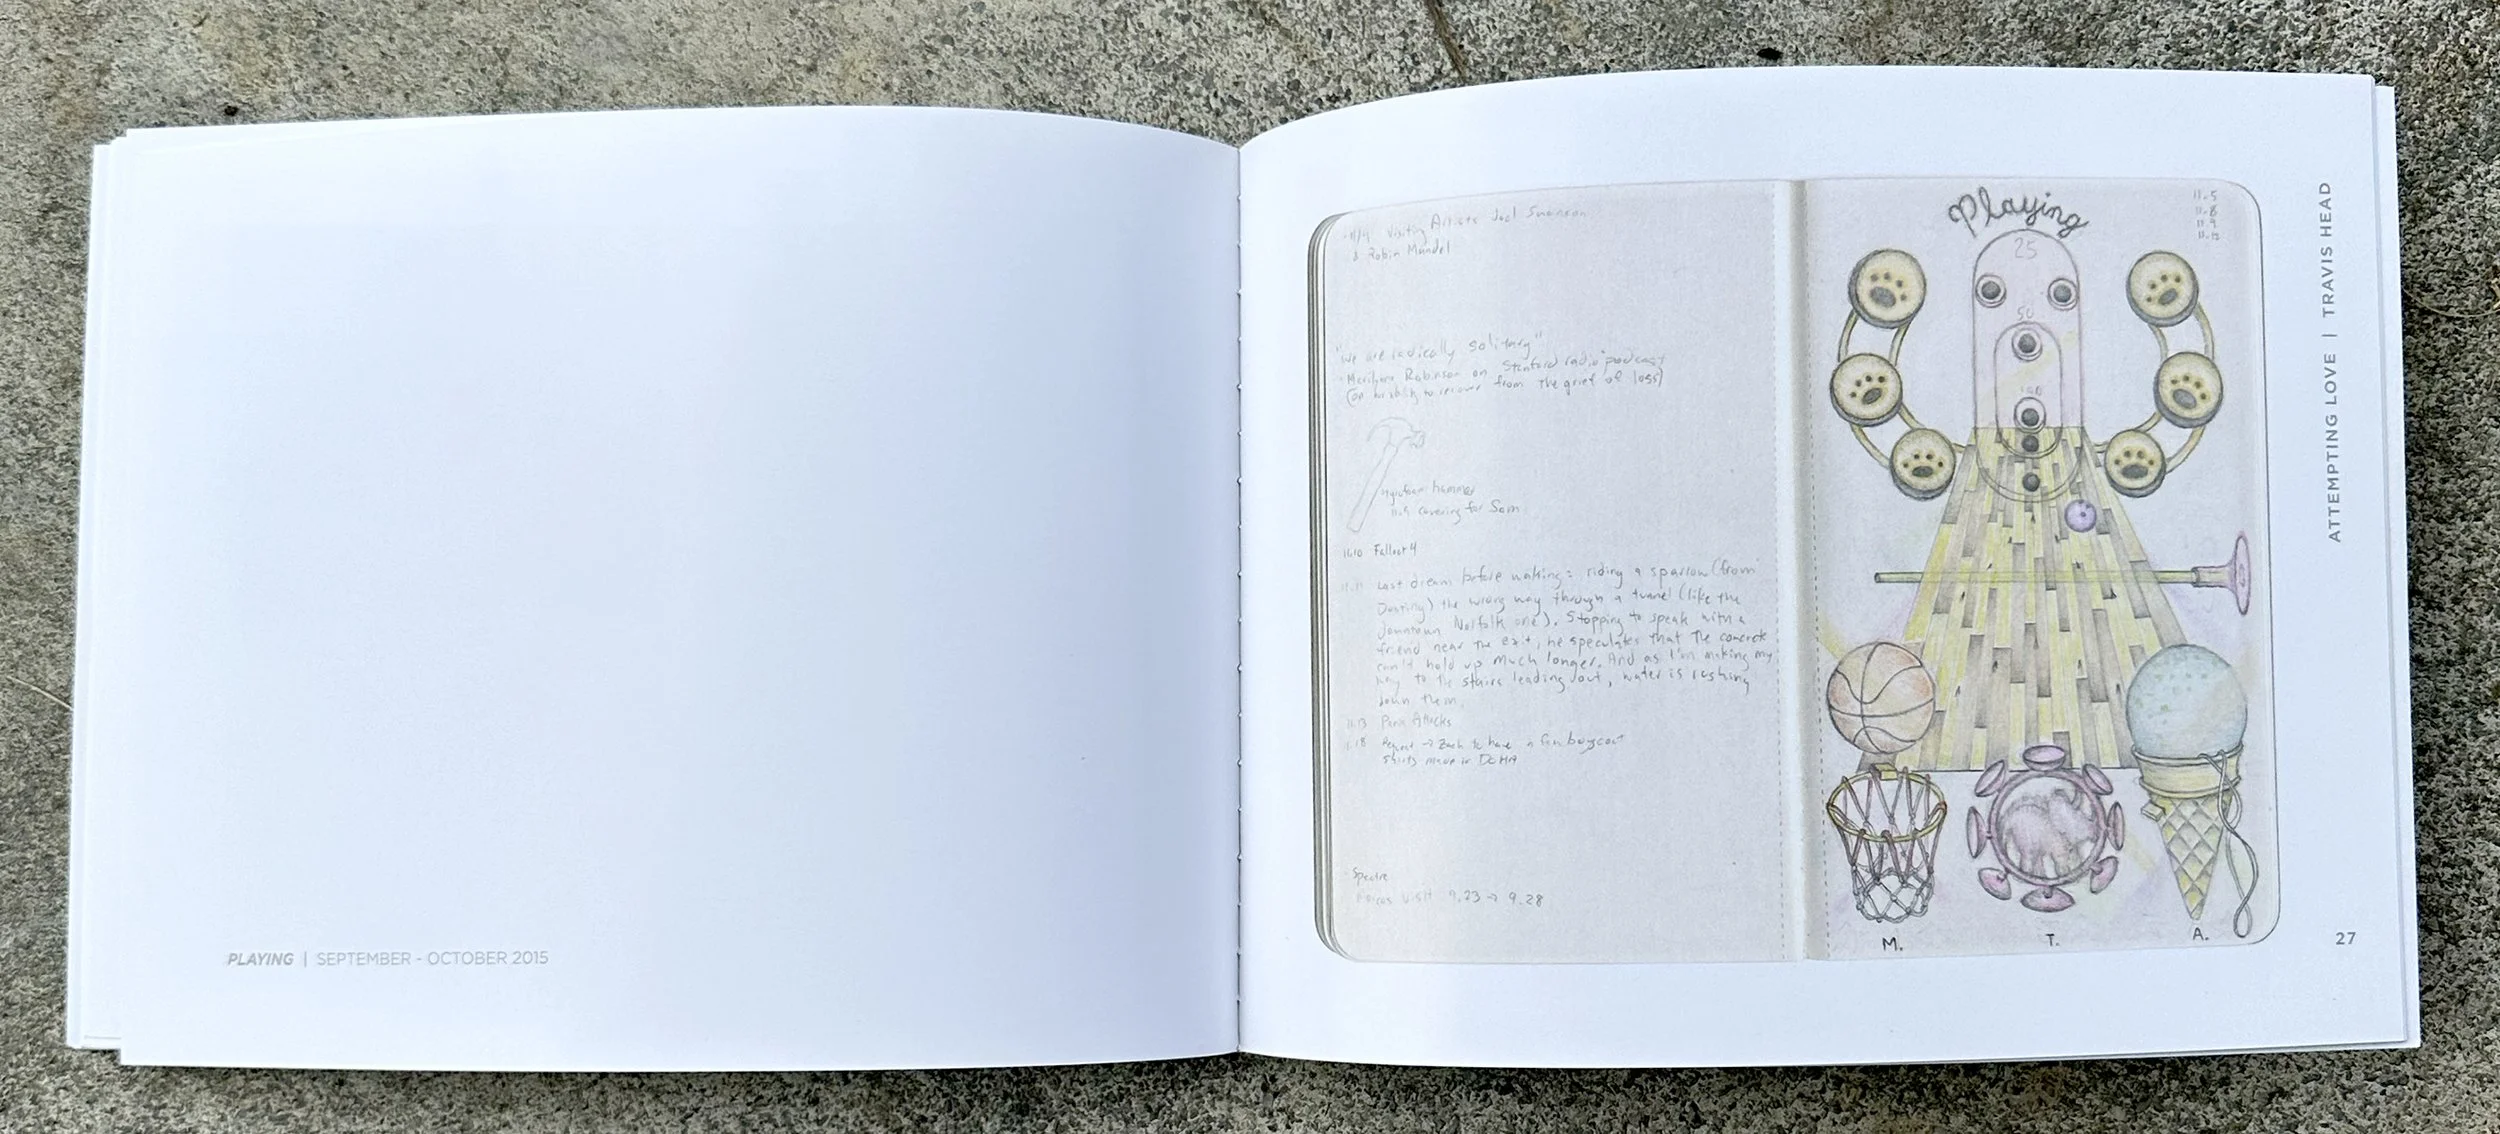 PLAYING | SEPTEMBER - OCTOBER 2015
11/4 Visiting Artists Joel Swanson
& Robin Mandel
"we are radically solitary"
- Marilynne Robinson on Stanford radio podcast
(on inability to recover from the grief of loss)
hammer
11.9 covering for Sam
11.10 Fallout 4
11.11 Last dream before waking: riding a sparrow (from
Destiny) the wrong way through a tunnel (like the
downtown Norfolk one). Stopping to speak with a
friend near the exit, he speculates that the concrete
can't hold up much longer. And as I'm making my
way to the stairs leading out, water is rushing
down them.
11.13 Paris Attacks
11.18 Request → Zach to have a few boycott
shirts made in DCHA
- Spectre
visit 9.23 → 9.28
Playing
11.5
11.8
11.9
11.12
25
50
100
M. T. A.
ATTEMPTING LOVE | TRAVIS HEAD
27